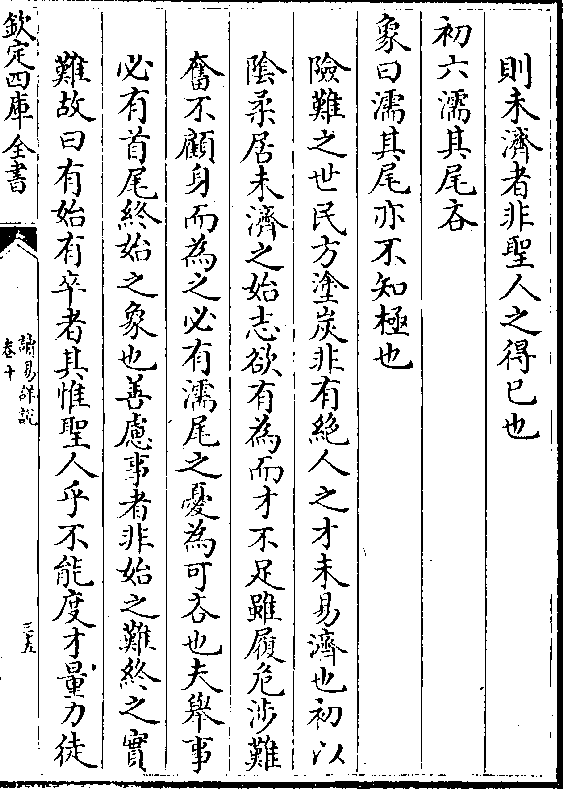 則未濟者非聖人之得已也
初六濡其尾吝
象曰濡其尾亦不知極也
險難之世民方塗炭非有絶人之才未易濟也初以
陰柔居未濟之始志欲有為而才不足雖履危涉難
奮不顧身而為之必有濡尾之憂為可吝也夫舉事
必有首尾終始之象也善慮事者非始之難終之實
難故曰有始有卒者其惟聖人乎不能度才量力徒
欽定四庫全書
讀易詳說
卷十
三五